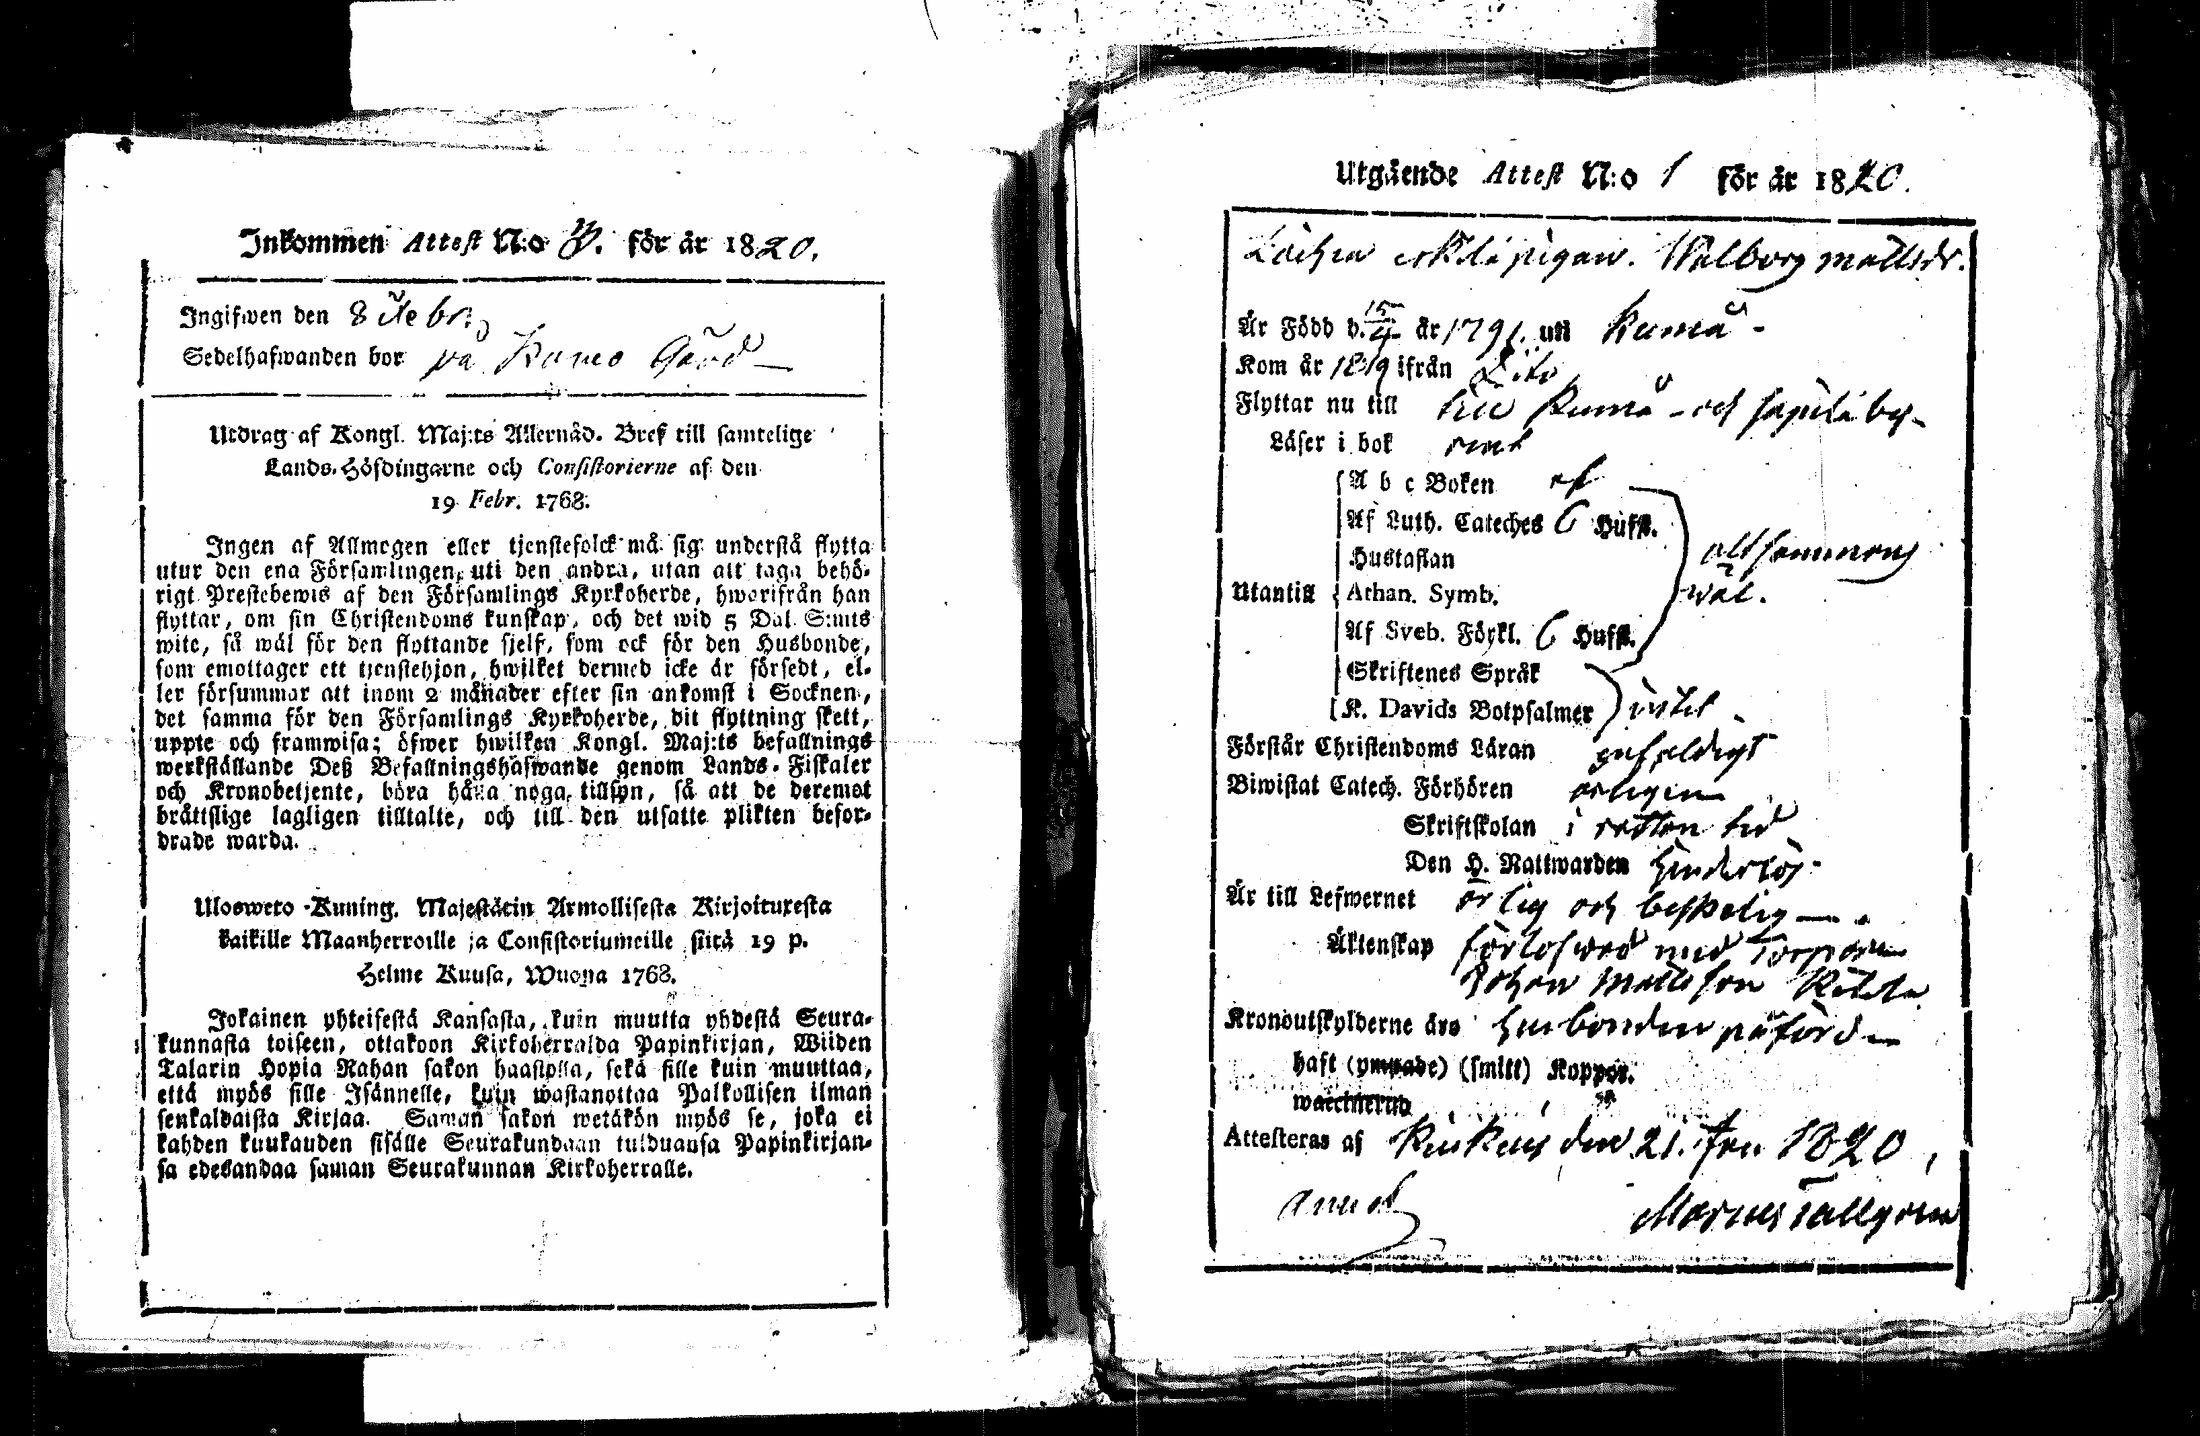 Inkommen Attest N:o 3. för år 1820.
Ingifwen den 8 Febr.
Sedelhafwanden bor på Kumo Gård
Utdrag af Kongl. Maj:ts Allernåd. Bref till samtelige
Lands-Höfdingarne och Consistorierne af den
19 Febr. 1768.
Ingen af Allmogen eller tjenstefolck må sig understå flytta
utur den ena Församlingen, uti den andra, utan att taga behö-
rigt Prestebewis af den Församlings Kyrkoherde, hwarifrån han
flyttar, om sin Christendoms kunskap, och det wid 5 Dal. S:mts
wite, så wäl för den flyttande sjelf, som ock för den Husbonde,
som emottager ett tjenstehjon, hwilket dermed icke är försedt, el-
ler försummar att inom 2 månader efter sin ankomst i Socknen,
det samma för den Församlings Kyrkoherde, dit flyttning skett,
uppte och framwisa; öfwer hwilken Kongl. Maj:ts befallnings
werkställande Deß Befallningshafwande genom Lands-Fiskaler
och Kronobetjente, böra hålla noga tillsyn, så att de deremot
bråttslige lagligen tilltalte, och till den utsatte plikten befor-
drade warda.
Ulosweto Kuning. Majestätin Armollisesta Kirjoituresta
kaikille Maanherroille ja Consistoriumeille siitä 19 p.
Helme Kuusa, Wuona 1768.
Jokainen yhteisestä Kansasta, kuin muutta yhdestä Seura-
kunnasta toiseen, ottakoon Kirkoherralda Papinkirjan, Wiiden
Talarin Hopia Rahan sakon haastolla, sekä sille kuin muuttaa,
että myös sille Isännelle, kuin wastanottaa Palkollisen ilman
senkaldaista Kirjaa. Saman sakon wetäkön myös se, joka ei
kahden kuukauden sisälle Seurakundaan tulduansa Papinkirjan-
sa edesandaa saman Seurakunnan Kirkoherralle.
Utgående Attest N:o 1 för år 1820.
pigan. Walborg Mattsdr.
Är Född d. 15/4 år 1791. uti Kumå
Kom år 1819 ifrån
Flyttar nu till Kumå och
Läser i bok rent
A b c Boken
Af Luth. Cateches 6 Hufst.
Hustaflan
allsammans
Utantill Athan. Symb.
wäl.
Af Sveb. Förkl. 6 Hufst.
Skriftenes Språk
K. Davids Botpsalmer intet
Förstår Christendoms Läran enfaldigt
Biwistat Catech. Förhören årligen
Skriftskolan i rättan tid
Den H. Nattwarden hinderlös
Är till Lefwernet ärlig och beskedlig
Äktenskap förlofwad med Torparen
Johan Mattsson
Kronoutskylderne äro husbonden påförde
haft (ympade) (smitt) Koppor.
Attesteras af Kiukais den 21. Jan 1820,